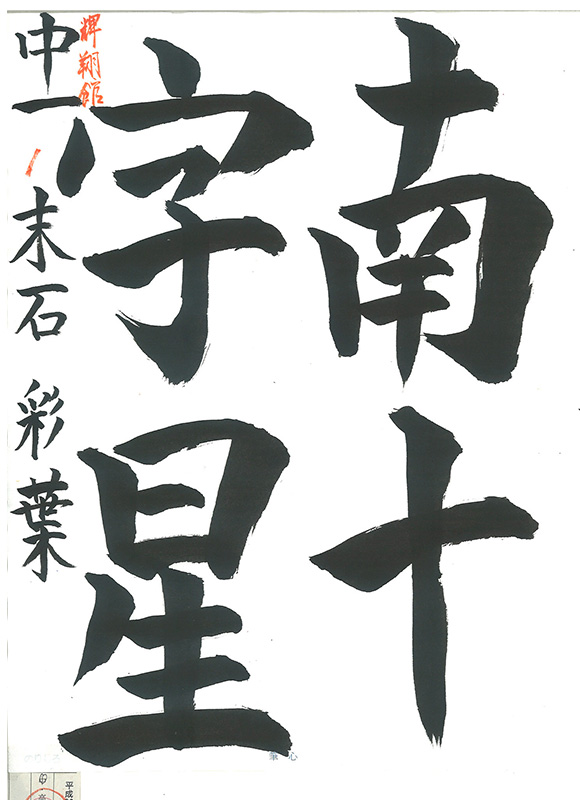 南十
字星
中一 末石 彩葉
翔館
平成